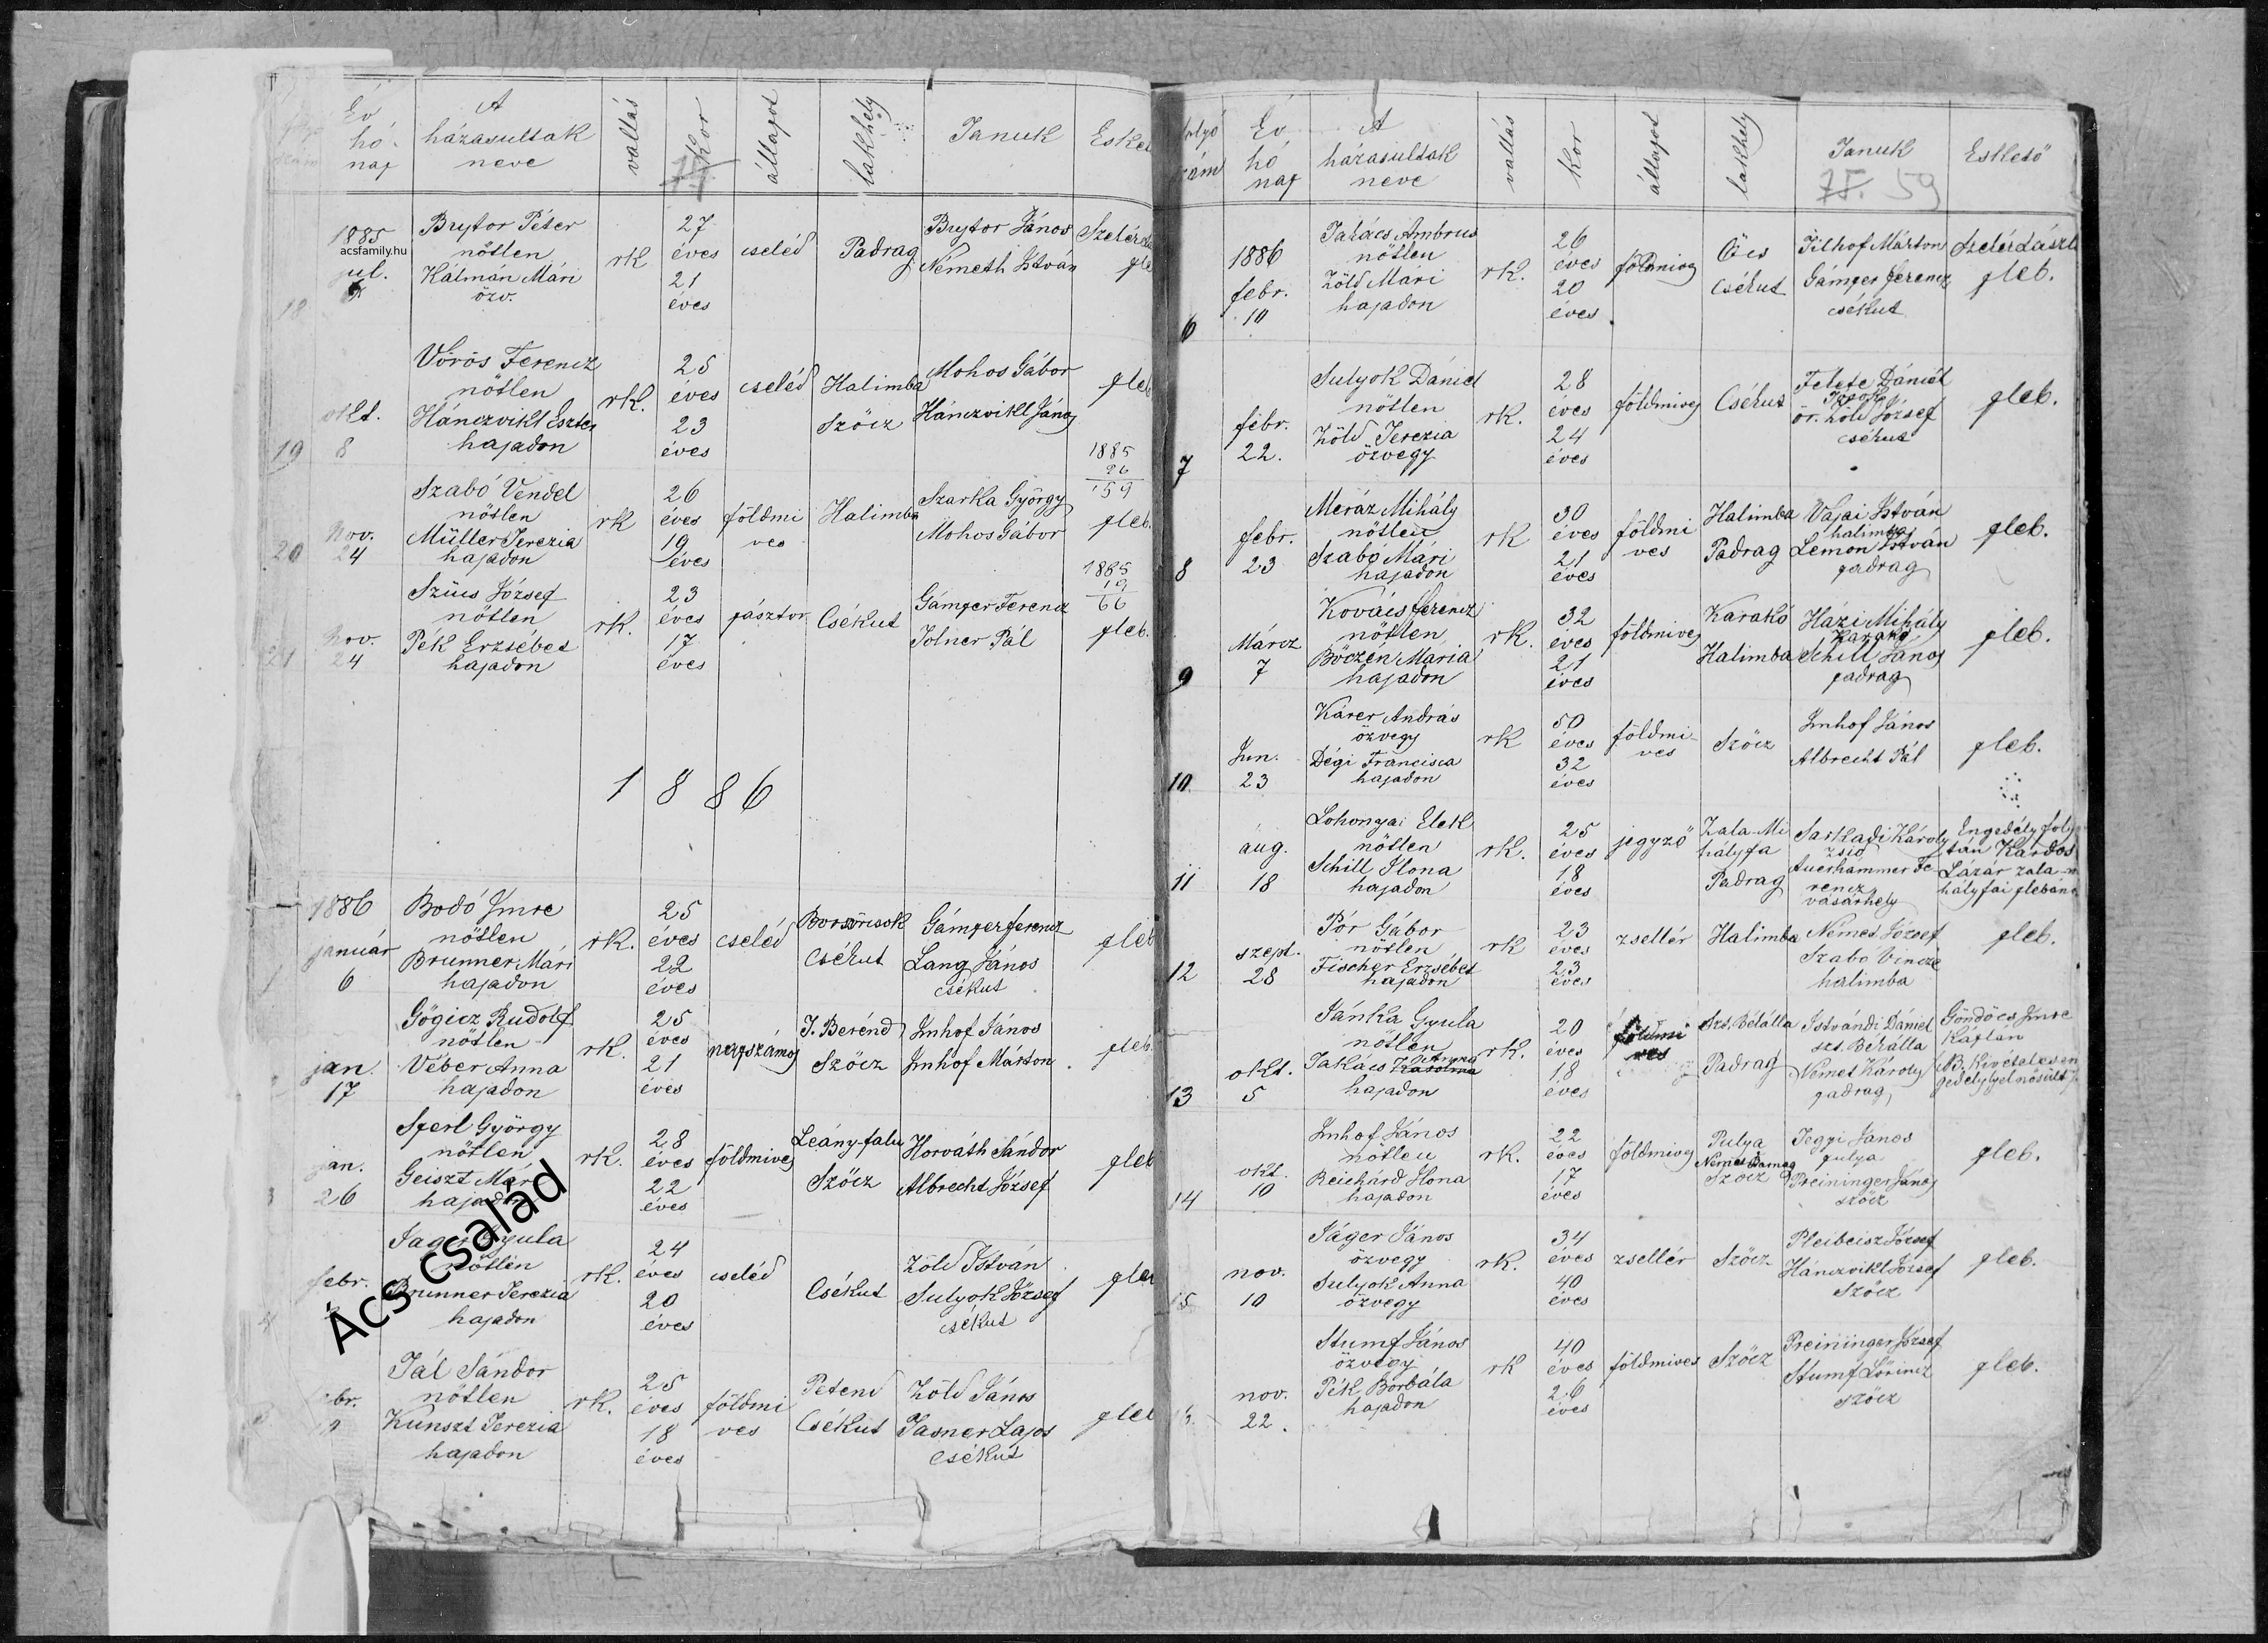 Év hó nap
A házasultak neve
vallás
Kor
állapot
lakhely
Tanuk
1885 jul.
acsfamily.hu
Brytor Péter
nőtlen
Kálmán Mári
özv.
rk
27 éves
21 éves
cseléd
Padrag
Brytor János
Németh István
19
okt. 8
Vörös Ferencz
nőtlen
Hánczvikl Eszter
hajadon
rk.
25 éves
23 éves
cseléd
Halimba
Szőcz
Mohos Gábor
Hánczvikl János
gleb
1885
26
59
20
Nov. 24
Szabó Vendel
nőtlen
Müller Terezia
hajadon
rk
26 éves
19 éves
földmi
ves
Halimba
Szarka György
Mohos Gábor
gleb.
1885
19
66
21
Nov. 24
Szüts József
nőtlen
Pék Erzsébet
hajadon
rk.
23 éves
17 éves
pásztor
Csékut
Gámper Ferencz
Tolner Pál
gleb.
1886
1886
január 6
Bodó Imre
nőtlen
Brunner Mári
hajadon
rk.
25 éves
22 éves
cseléd
Csékut
Gámper ferencz
Lang János
csékut
gleb
jan. 17
Gögicz Rudolf
nőtlen
Véber Anna
hajadon
rk.
25 éves
21 éves
napszámos
T. Berénd
Szőcz
Imhof János
Imhof Márton
gleb
jan. 26
Sperl György
nőtlen
Geiszt Mári
hajadon
rk.
28 éves
22 éves
földmives
Leány-falu
Szőcz
Horváth Sándor
Albrecht József
gleb
febr.
Jager Gyula
nőtlen
Brunner Terezia
hajadon
rk.
24 éves
20 éves
cseléd
Csékut
Zöld István
Sulyok József
csékut
Ács család
Pál Sándor
nőtlen
Kunszt Terezia
hajadon
rk.
25 éves
18 éves
földmi
ves
Petend
Csékut
Zöld János
Pasner Lajos
Csékút
Év hó nap
A házasultak neve
vallás
kor
állapot
lakhely
Tanuk
75. 59
Eskető
6
1886 febr. 10
Takács Ambrus
nőtlen
Zöld Mári
hajadon
rk.
26 éves
20 éves
földmives
Öcs
Csékut
Pilhof Márton
Gámper ferencz
csékut
gleb.
7
febr. 22.
Sulyok Dániel
nőtlen
Zöld Terezia
özvegy
rk.
28 éves
24 éves
földmives
Csékut
Fekete Dániel
ör. Zöld József
csékut
gleb.
8
febr. 23
Meráz Mihály
nőtlen
Szabó Mári
hajadon
rk
30 éves
21 éves
földmi
ves
Halimba
Padrag
Vajai István
halimba
Lemon István
padrag
gleb.
9
Márcz 7
Kovács ferencz
nőtlen
Böczén Maria
hajadon
rk.
32 éves
21 éves
földmives
Karakó
Halimba
Házi Mihály
Karakó
Schill János
padrag
gleb.
10
Jun. 23
Kárer András
özvegy
Dégi Francisca
hajadon
rk
50 éves
32 éves
földmi-
ves
Szőcz
Imhof János
Albrecht Pál
gleb.
11
aug. 18
Lohonyai Elek
nőtlen
Schill Ilona
hajadon
rk.
25 éves
18 éves
jegyző
Zala-Mi
hályfa
Padrag
Sarkadi Károly
Auerhammer Fe-
rencz
vásárhely
Engedély foly
tán Kardos
Lázár zala-m
hályfai plebános
12
szept. 28
Pór Gábor
nőtlen
Fischer Erzsébet
hajadon
rk
23 éves
23 éves
zsellér
Halimba
Német József
Szabo Vincze
halimba
gleb.
13
okt. 5
Jánka Gyula
nőtlen
Takács Karolina
Anna
hajadon
rk.
20 éves
18 éves
földmi
ves
Szt. Békálla
Padrag
Istvándi Dániel
szt. Békálla
Német Károly
padrag
Göndöcs Imre
Káplán
(NB. Kivételes en
gedélylyel nősült)
14
okt. 10
Imhof János
nőtlen
Reichárd Ilona
hajadon
rk.
22 éves
17 éves
földmives
Pulya
Szőcz
Tegyi János
pulya
Preininger János
szőcz
gleb.
15
nov. 10
Jáger János
özvegy
Sulyok Anna
özvegy
rk.
34 éves
40 éves
zsellér
Szőcz
Pleibeisz József
Hánczvikl József
Szőcz
gleb.
nov. 22.
Stumf János
özvegy
Pék Borbála
hajadon
rk
40 éves
26 éves
földmives
Szőcz
Preininger József
Stumf Lőrincz
szőcz
gleb.